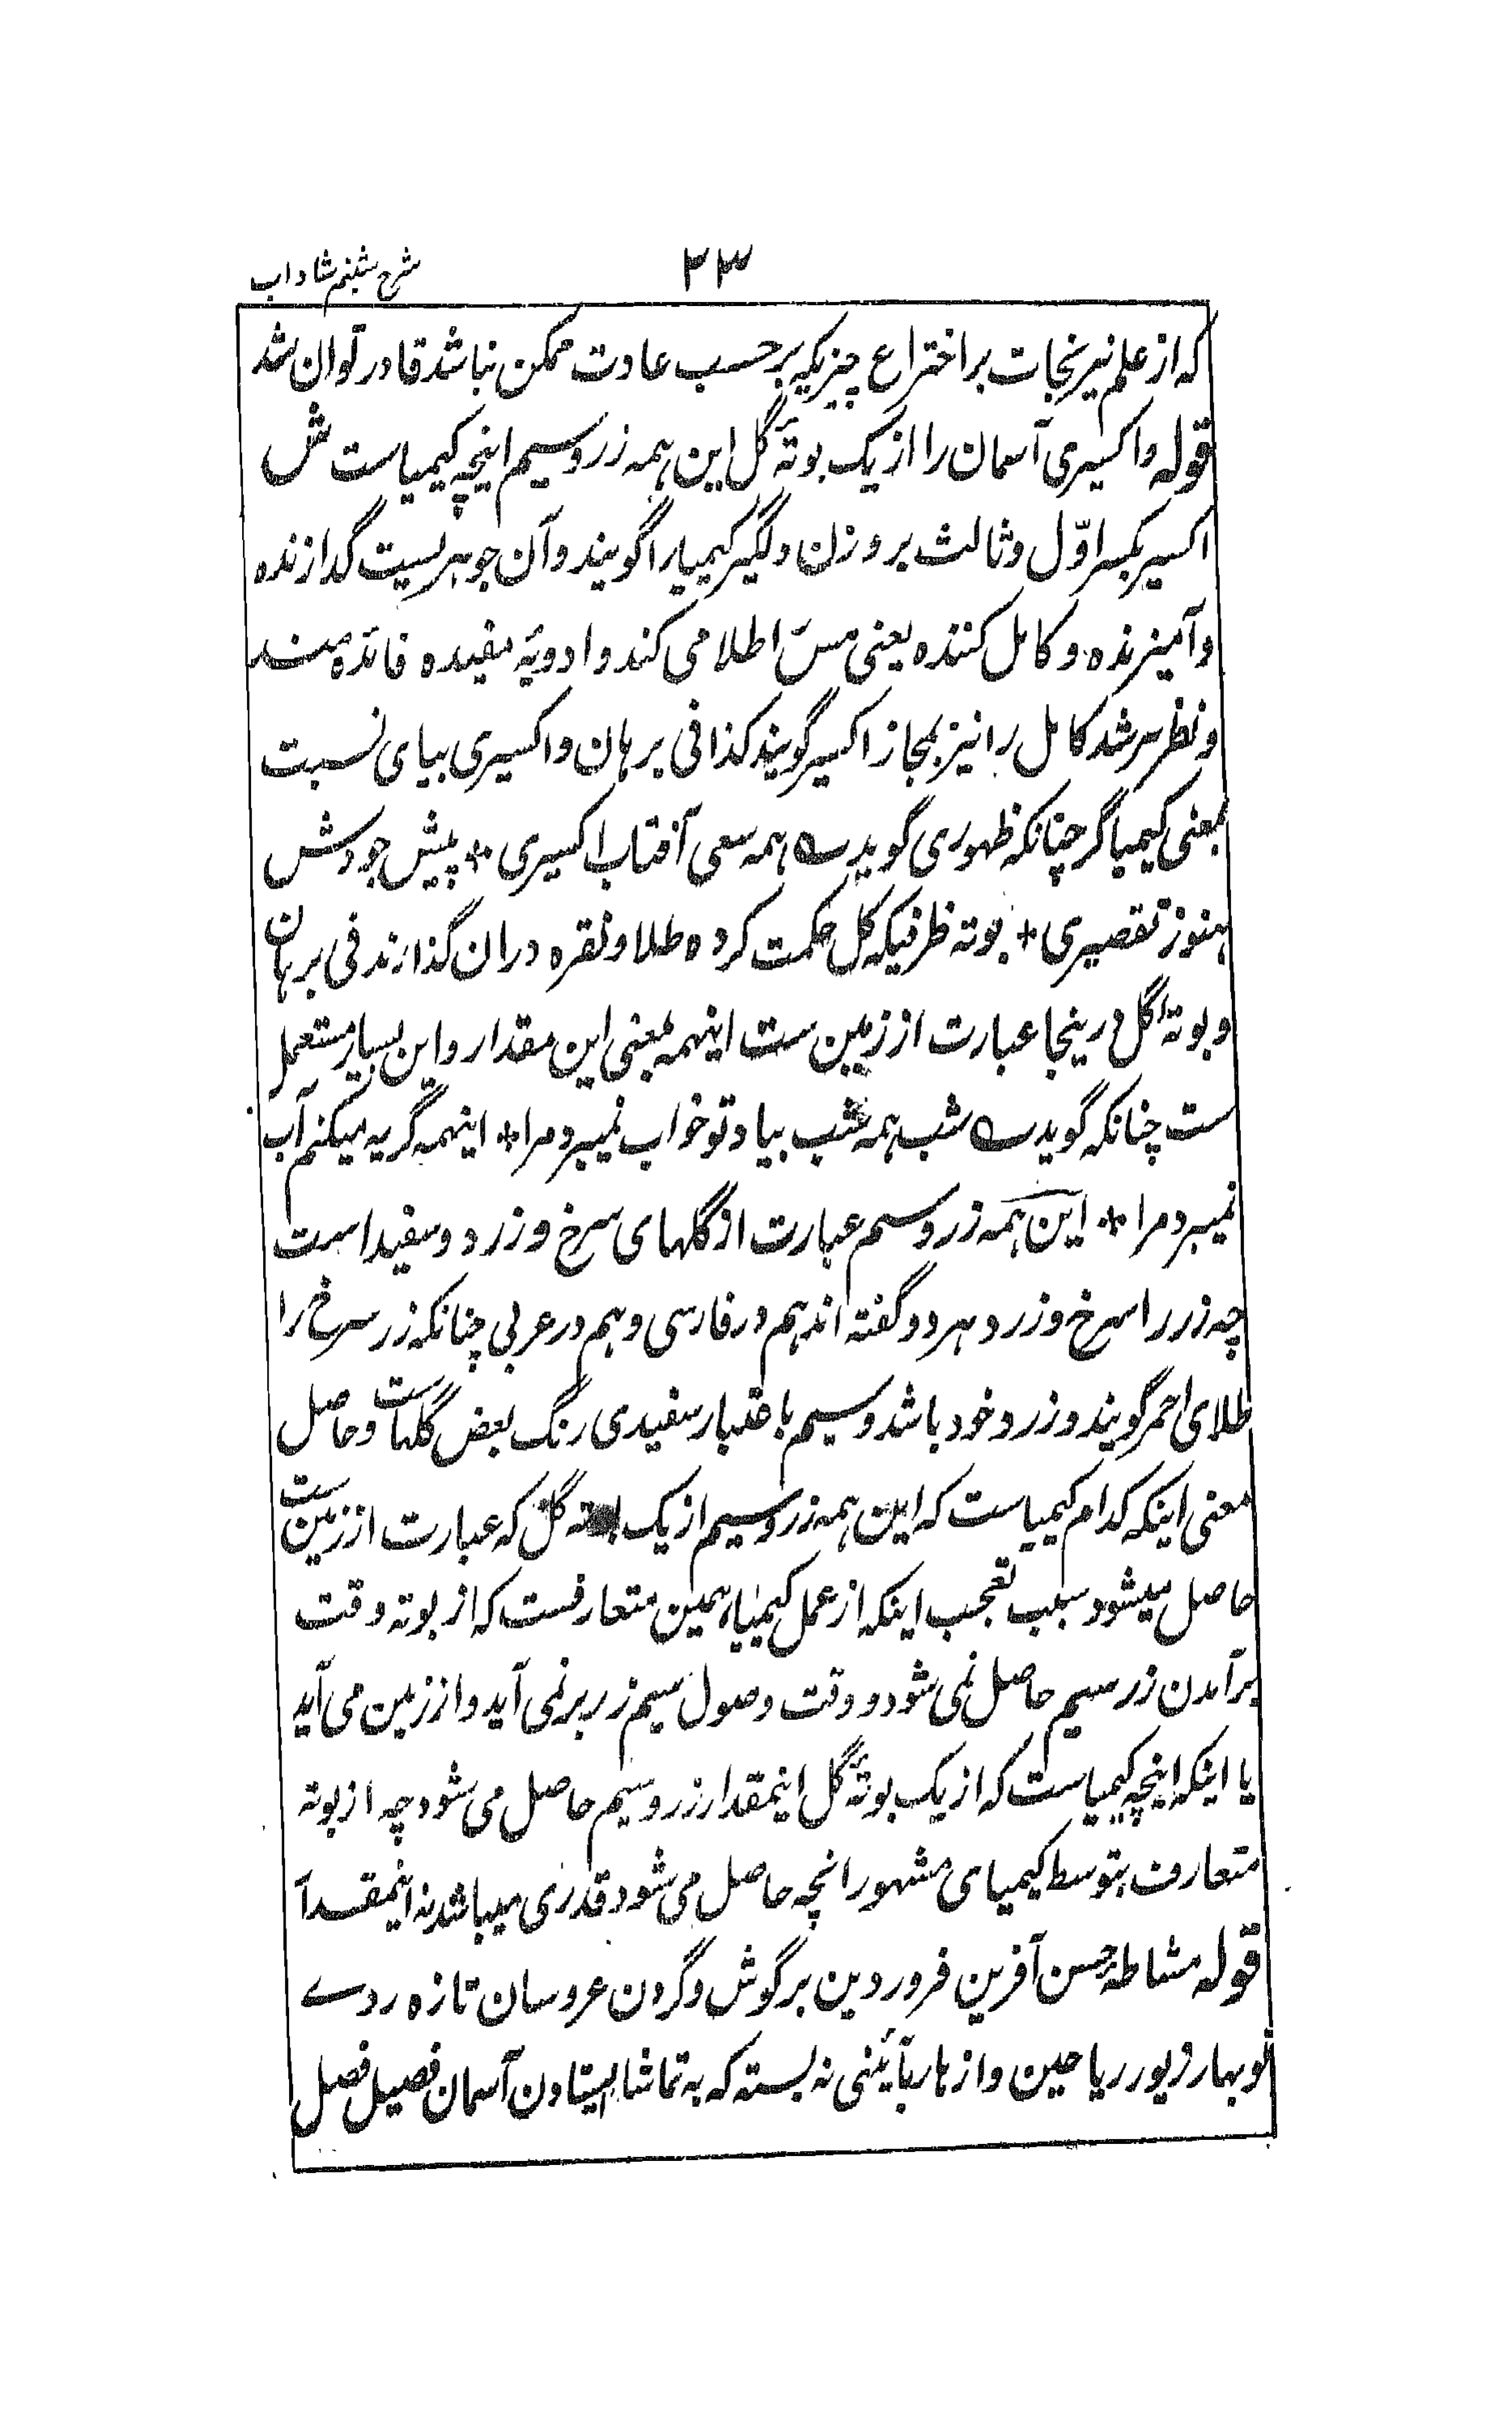 ۲۳
شرح شبنم شاداب
که از علم نیرنجات بر اختراع چیزیکه بر حسب عادت ممکن نباشد قادر توان شد
قوله واکسیری آسمان را از یک بوتهٔ گل این همه زر و سیم اینچه کیمیاست ش
اکسیر بکسر اوّل و ثالث بر وزن دلگیر کیمیا را گویند و آن جوهریست گدازنده
و آمیزنده و کامل کننده یعنی مسّ اطلا می کند و ادویهٔ مفیده فائده مند
و نظر مرشد کامل را نیز بمجاز اکسیر گویند کذا فی برهان و اکسیری بیای نسبت
بمعنی کیمیاگر چنانکه ظهوری گوید ؎ همه سعی آفتاب اکسیری * پیش جودش
هنوز تقصیری * بوته ظرفیکه گل حکمت کرده طلا و نقره دران گذارند فی برهان
و بوتهٔ گل درینجا عبارت از زمین ست اینهمه بمعنی این مقدار و این بسیار مستعمل
ست چنانکه گوید ؎ شب همه شب بیاد تو خواب نمیبرد مرا * اینهمه گریه میکنم آب
نمیبرد مرا * این همه زر و سیم عبارت از گلهای سرخ و زرد و سفید است
چه زر را سرخ و زرد هر دو گفته اند هم در فارسی و هم در عربی چنانکه زر سرخ را
طلای احمر گویند و زرد خود باشد و سیم باعتبار سفیدی رنگ بعض گلهاست و حاصل
معنی اینکه کدام کیمیاست که این همه زر و سیم از یک بوته گل که عبارت از زمین ست
حاصل میشود سبب تعجب اینکه از عمل کیمیا همین متعارفست که از بوته وقت
برآمدن زر سیم حاصل نمی شود و وقت وصول سیم زر بر نمی آید و از زمین می آید
یا اینکه اینچه کیمیاست که از یک بوتهٔ گل اینمقدار زر و سیم حاصل می شود چه از بوته
متعارف بتوسط کیمیای مشهور انچه حاصل می شود قدری میباشد نه اینمقدار
قوله مشاطهٔ حسن آفرین فروردین بر گوش و گردن عروسان تازه روے
نوبهار زیور ریاحین و ازهار بآئینی نه بسته که به تماشا ایستادن آسمان فصیل فصل